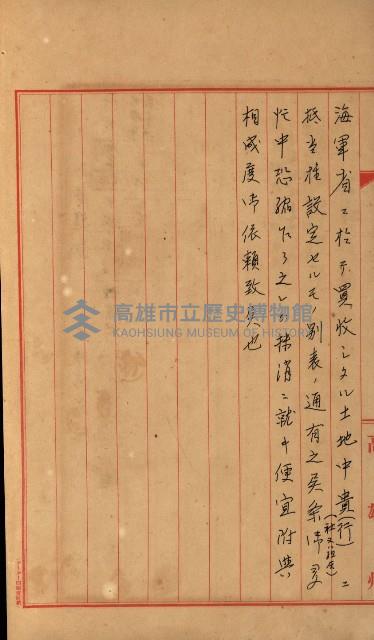 海軍省ニ於テ買收シタル土地中貴(行)ニ
(社又ハ組合)
抵当権設定セルモノ別表ノ通有之候条御多
忙中恐縮乍ら之レガ抹消ニ就キ便宜附與
相成度御依頼致候也
高雄州
高雄市立歷史博物館
KAOHSIUNG MUSEUM OF HISTORY